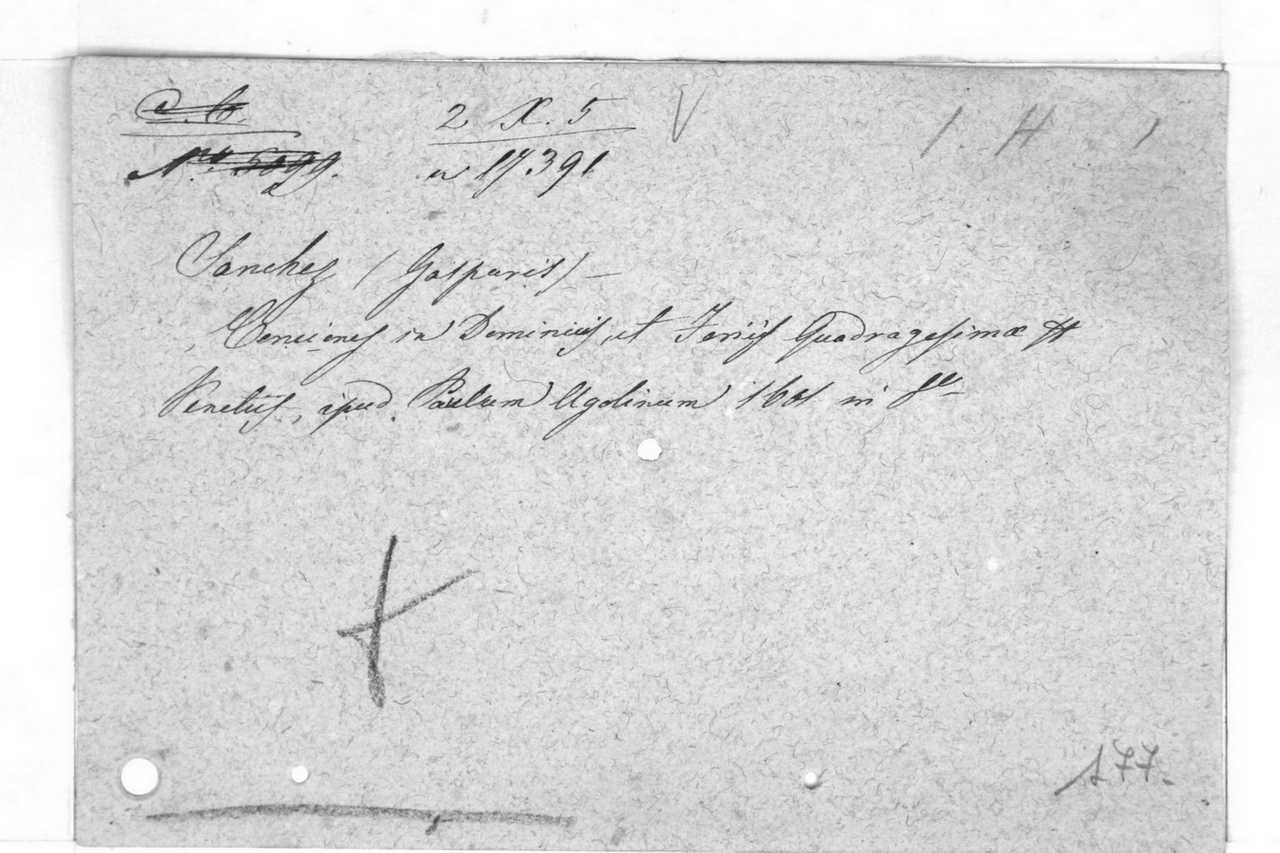 C.C. 2 X. 5 V 1. H 1
Nro 5099. n 17391
Sanchez (Gasparis) –
Conciones in Dominicis, et Feriis Quadragesimæ #
Venetiis, apud Paulum Ugolinum 1601 in
177.